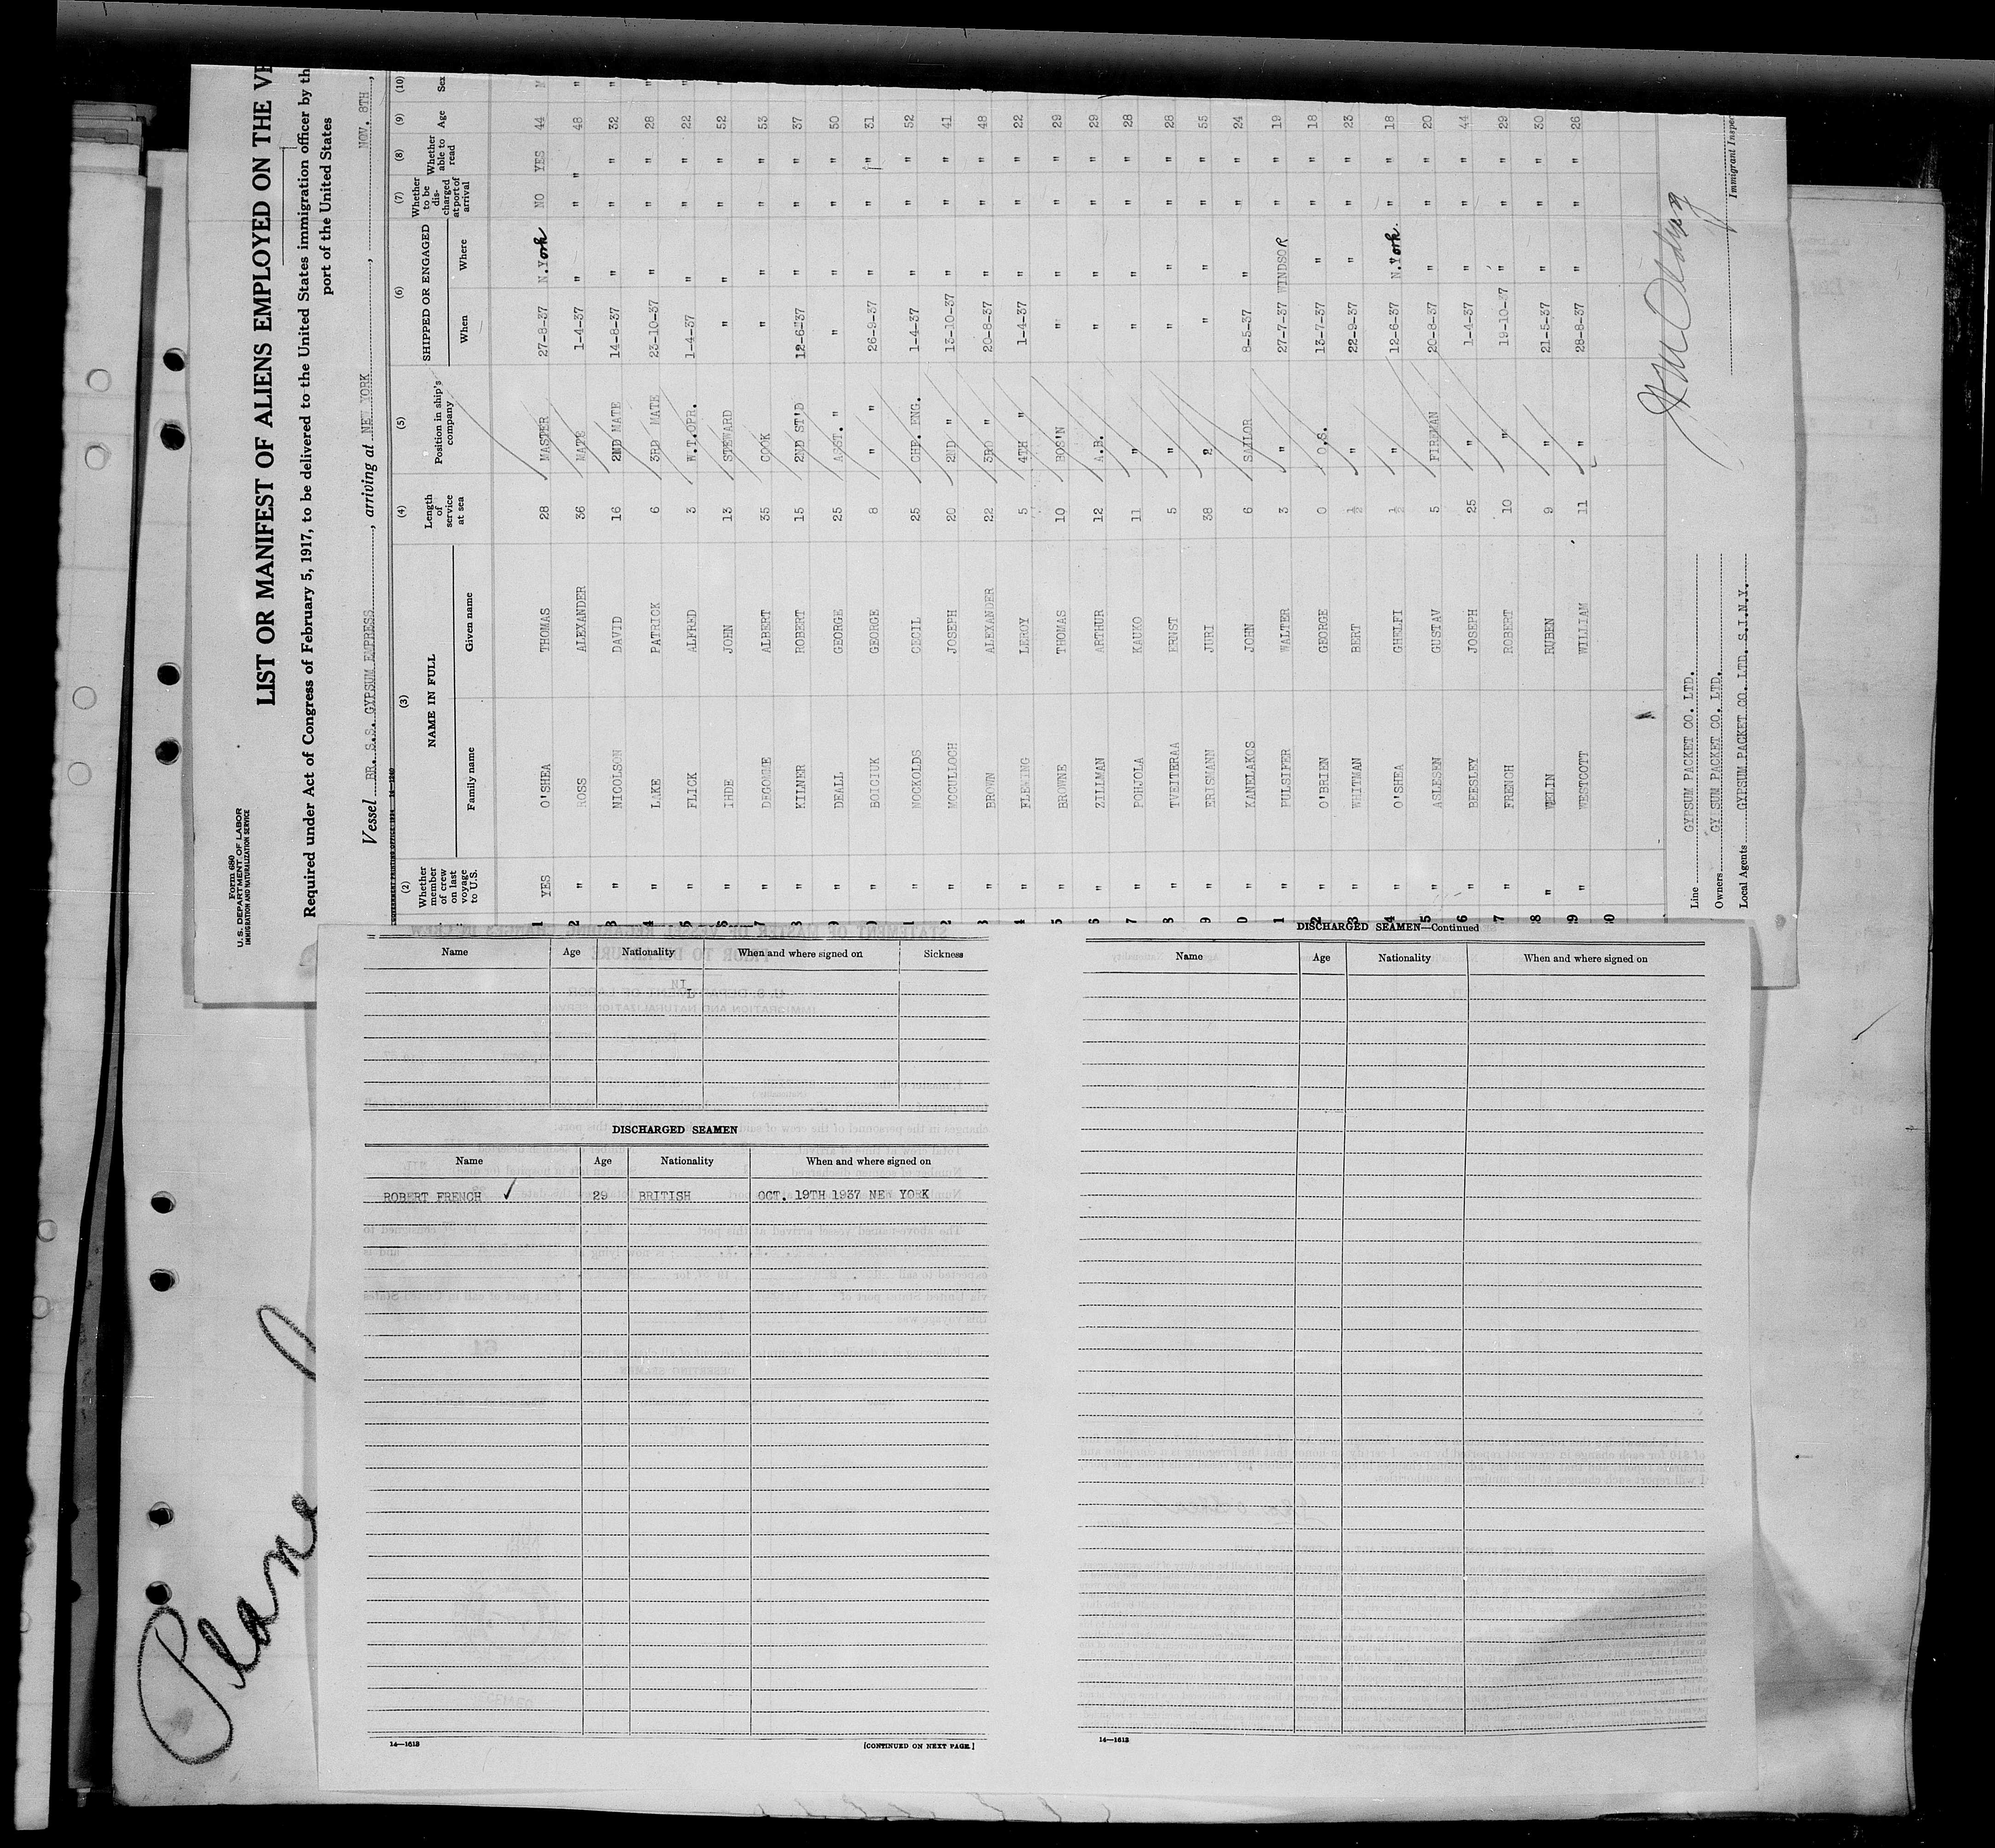 Form 680
U. S. DEPARTMENT OF LABOR
IMMIGRATION AND NATURALIZATION SERVICE
LIST OR MANIFEST OF ALIENS EMPLOYED ON THE
Required under Act of Congress of February 5, 1917, to be delivered to the United States immigration officer by th
port of the United States
Vessel BR. S.S. GYPSUM EMPRESS, arriving at NEW YORK, NOV. 8TH,
(2) (3) (4) (5) (6) (7) (8) (9) (10)
Whether member of crew on last voyage to U.S. NAME IN FULL Family name Given name Length of service at sea Position in ship's company SHIPPED OR ENGAGED When Where Whether to be discharged at port of arrival Whether able to read Age Sex
1 YES O'SHEA THOMAS 28 MASTER 27-8-37 N.York NO YES 44 M
2 " ROSS ALEXANDER 36 MATE 1-4-37 " " " 48 "
3 " NICOLSON DAVID 16 2ND MATE 14-8-37 " " " 32 "
4 " LAKE PATRICK 6 3RD MATE 23-10-37 " " " 28 "
5 " FLICK ALFRED 3 W.T.OPR. 1-4-37 " " " 22 "
6 " IHDE JOHN 13 STEWARD " " " " 52 "
7 " DEGOMME ALBERT 35 COOK " " " " 53
8 " KILNER ROBERT 15 2ND ST'D 12-6-37 " " " 37
9 " DEALL GEORGE 25 ASST. " " " " " 50
0 " BOICIUK GEORGE 8 " " 26-9-37 " " " 31
1 " NOCKOLDS CECIL 25 CHF. ENG. 1-4-37 " " " 52
2 " MCCULLOCH JOSEPH 20 2ND " 13-10-37 " " " 41
3 " BROWN ALEXANDER 22 3RD " 20-8-37 " " " 48
4 " FLEMING LEROY 5 4TH " 1-4-37 " " " 22
5 " BROWNE THOMAS 10 BOS'N " " " " 29
6 " ZILLMAN ARTHUR 12 A.B. " " " " 29
7 " POHJOLA KAUKO 11 " " " " " 28
8 " TVEITERAA ERNST 5 " " " " " 28
9 " ERISMANN JURI 38 " " " " 55
0 " KANELAKOS JOHN 6 SAILOR 8-5-37 " " " 24
1 " PULSIFER WALTER 3 " 27-7-37 WINDSOR " " 19
22 " O'BRIEN GEORGE 0 O.S. 13-7-37 " " " 18
23 " WHITMAN BERT ½ " 22-9-37 " " " 23
24 " O'SHEA GHELFI ½ " 12-6-37 N.York. " " 18
25 " ASLESEN GUSTAV 5 FIREMAN 20-8-37 " " " 20
26 " BEESLEY JOSEPH 25 " 1-4-37 " " " 44
27 " FRENCH ROBERT 10 " 19-10-37 " " " 29
28 " WELIN RUBEN 9 " 21-5-37 " " " 30
29 " WESTCOTT WILLIAM 11 " 28-8-37 " " " 26
30
Line GYPSUM PACKET CO. LTD.
Owners GYPSUM PACKET CO. LTD.
Local Agents GYPSUM PACKET CO. LTD. S.I.N.Y.
Immigrant Inspec
Name Age Nationality When and where signed on Sickness
NIL
DISCHARGED SEAMEN
Name Age Nationality When and where signed on
ROBERT FRENCH ✓ 29 BRITISH OCT. 19TH 1937 NEW YORK
14—1613 [CONTINUED ON NEXT PAGE.]
DISCHARGED SEAMEN—Continued
Name Age Nationality When and where signed on
14—1613
Plane